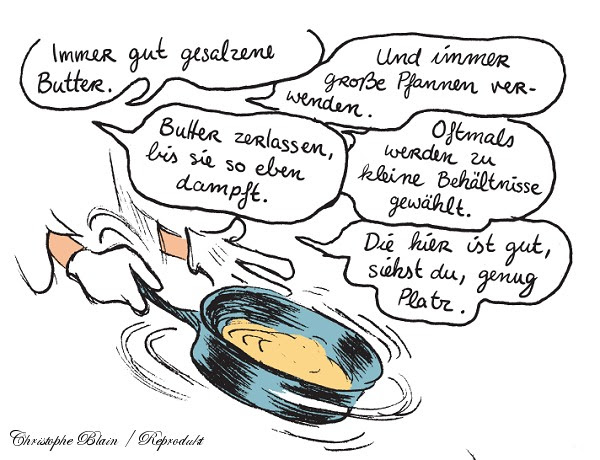 Immer gut gesalzene
Butter.
Und immer
große Pfannen ver-
wenden.
Butter zerlassen,
bis sie so eben
dampft.
Oftmals
werden zu
kleine Behältnisse
gewählt.
Die hier ist gut,
siehst du, genug
Platz.
Christophe Blain / Reprodukt